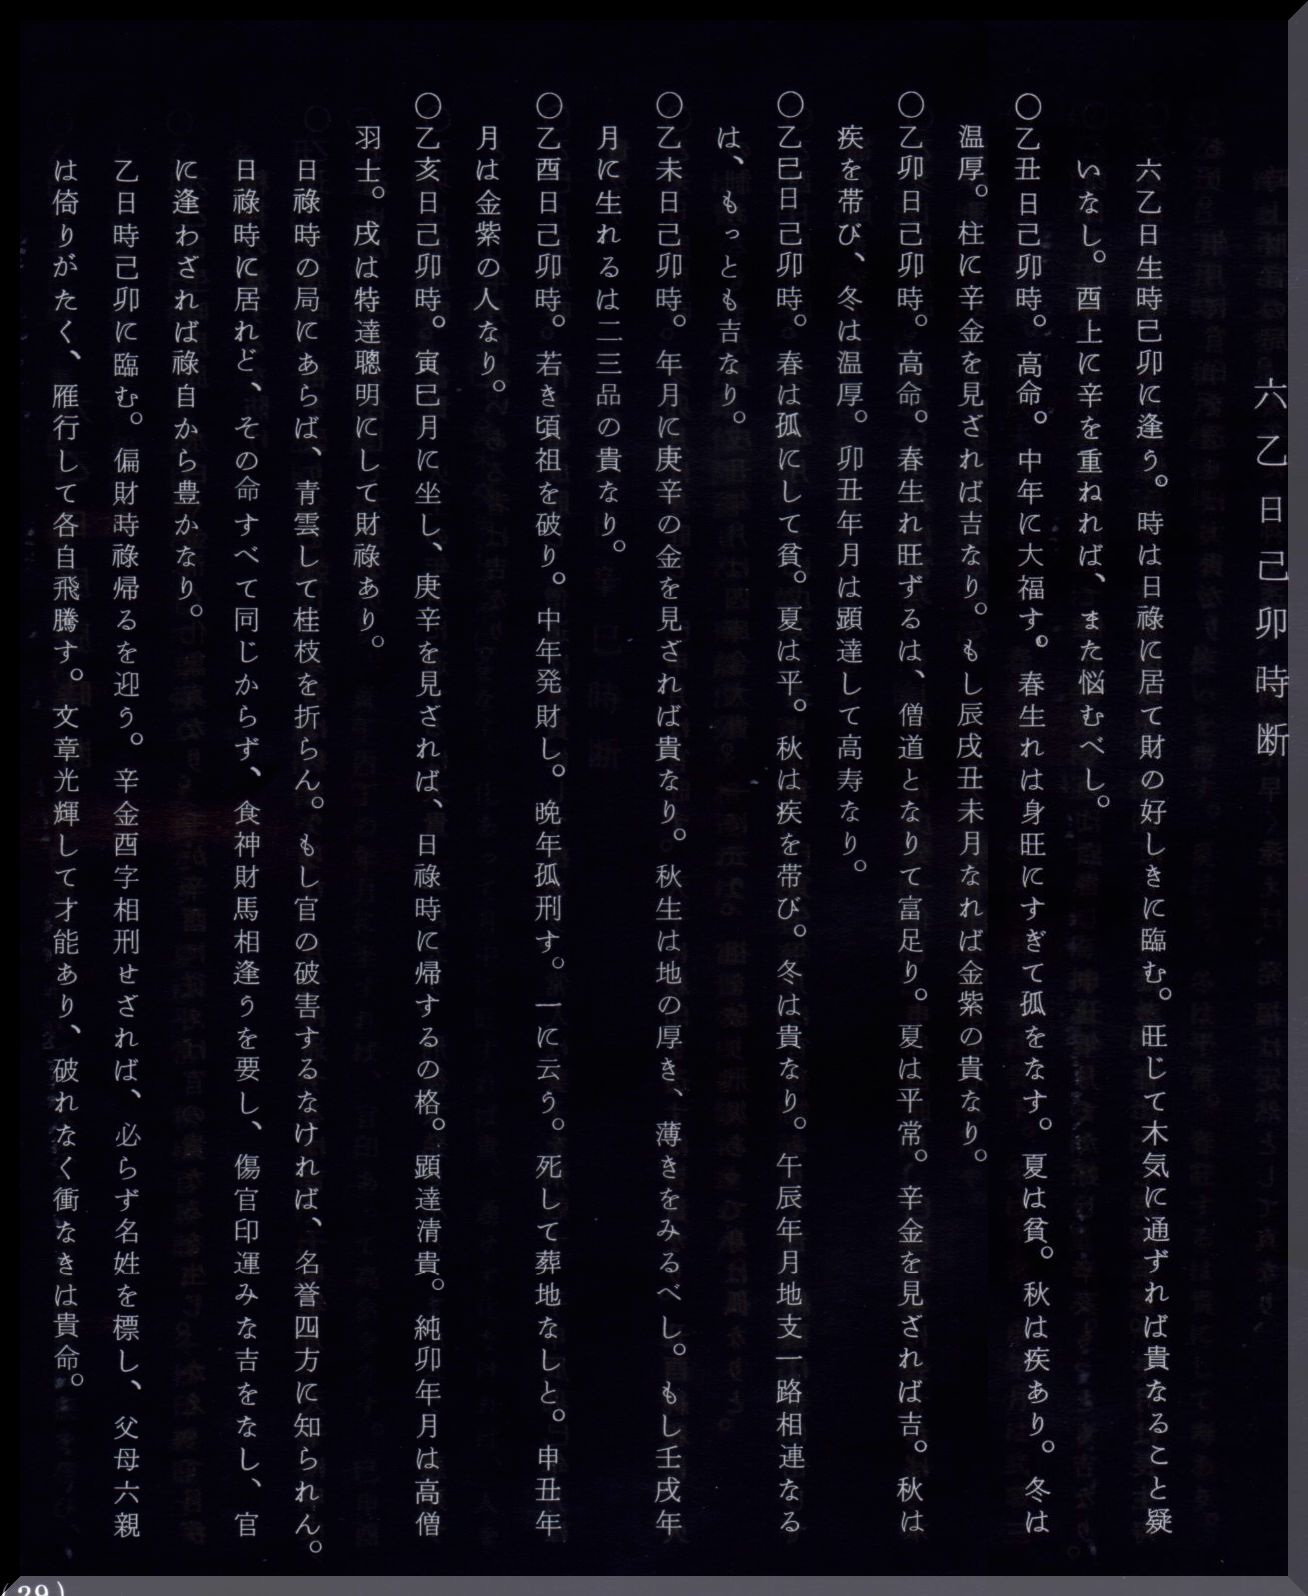 六乙日己卯時断
六乙日生時巳卯に逢う。時は日祿に居て財の好しきに臨む。旺じて木気に通ずれば貴なること疑
いなし。酉上に辛を重ねれば、また悩むべし。
〇乙丑日己卯時。高命。中年に大福す。春生れは身旺にすぎて孤をなす。夏は貧。秋は疾あり。冬は
温厚。柱に辛金を見ざれば吉なり。もし辰戌丑未月なれば金紫の貴なり。
〇乙卯日己卯時。高命。春生れ旺ずるは、僧道となりて富足り。夏は平常。辛金を見ざれば吉。秋は
疾を帯び、冬は温厚。卯丑年月は顕達して高寿なり。
〇乙巳日己卯時。春は孤にして貧。夏は平。秋は疾を帯び。冬は貴なり。午辰年月地支一路相連なる
は、もっとも吉なり。
〇乙未日己卯時。年月に庚辛の金を見ざれば貴なり。秋生は地の厚き、薄きをみるべし。もし壬戌年
月に生れるは二三品の貴なり。
〇乙酉日己卯時。若き頃祖を破り。中年発財し。晩年孤刑す。一に云う。死して葬地なしと。申丑年
月は金紫の人なり。
〇乙亥日己卯時。寅巳月に坐し、庚辛を見ざれば、日祿時に帰するの格。顕達清貴。純卯年月は高僧
羽士。戌は特達聰明にして財祿あり。
日祿時の局にあらば、青雲して桂枝を折らん。もし官の破害するなければ、名誉四方に知られん。
日祿時に居れど、その命すべて同じからず、食神財馬相逢うを要し、傷官印運みな吉をなし、官
に逢わざれば祿自から豊かなり。
乙日時己卯に臨む。偏財時祿帰るを迎う。辛金酉字相刑せざれば、必らず名姓を標し、父母六親
は倚りがたく、雁行して各自飛騰す。文章光輝して才能あり、破れなく衝なきは貴命。
(39)